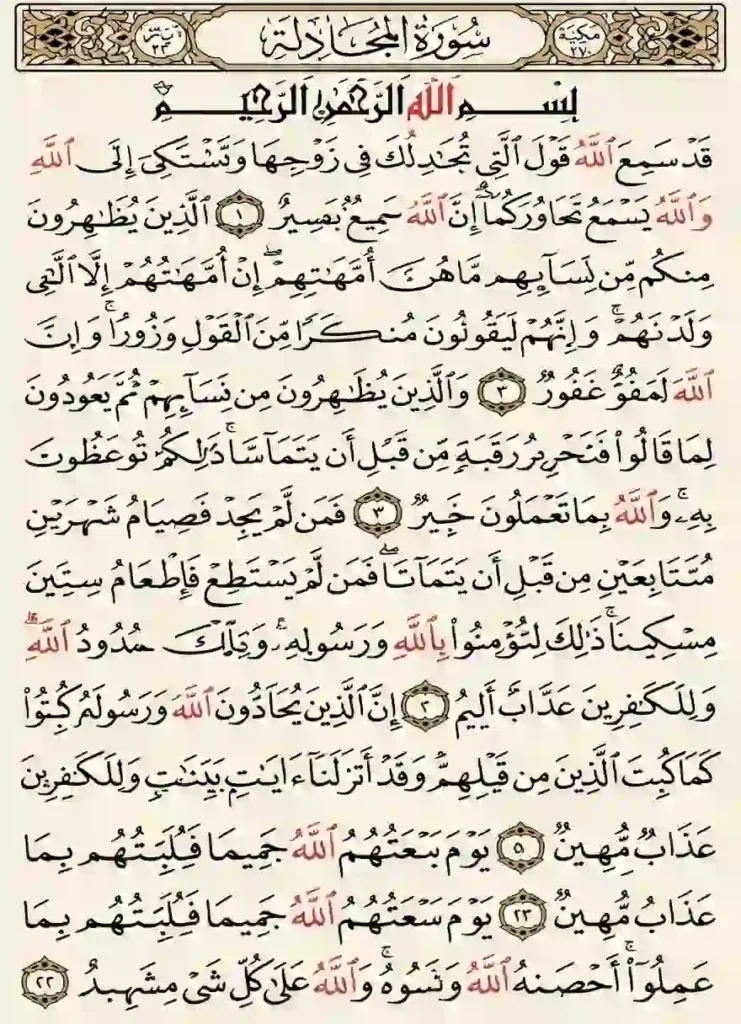 مكية ٢٧٠ سُورَةُ المُجَادِلَة ٢٣
بِسْمِ اللَّهِ الرَّحْمَٰنِ الرَّحِيمِ
قَدْ سَمِعَ اللَّهُ قَوْلَ الَّتِي تُجَادِلُكَ فِي زَوْجِهَا وَتَشْتَكِىٓ إِلَى اللَّهِ
وَاللَّهُ يَسْمَعُ تَحَاوُرَكُمَا إِنَّ اللَّهَ سَمِيعٌ بَفَسِيرٌ ١ الَّذِينَ يُظَٰهِرُونَ
مِنكُم مِّن نِسَآئِهِم مَّا هُنَّ أُمَّهَٰتِهِمْ إِنْ أُمَّهَٰتُهُمْ إِلَّا الَّٰٓـِٔى
وَلَدْنَهُمْ وَإِنَّهُمْ لَيَقُونُونَ مُنكَرًا مِّنَ الْقَوْلِ وَزُورًا وَإِنَّ
اللَّهَ لَمَفُوٌّ غَفُورٌ ٣ وَالَّذِينَ يُظَٰهِرُونَ مِن نِسَآئِهِمْ ثُمَّ يَعُودُونَ
لِمَا قَالُوا۟ فَتَحْرِيرُ رَقَبَةٍ مِّن قَبْلِ أَن يَتَمَآسَّا ذَٰلِكُمْ تُوعَظُوتَ
بِهِۦ وَاللَّهُ بِمَا تَعْمَلُونَ خَبِيرٌ ٣ فَمَن لَّمْ يَجِدْ فَصِيَامُ شَهْرَيْنِ
مُتَتَابِعَيْنِ مِن قَبْلِ أَن يَتَمَآتَا فَمَن لَّمْ يَسْتَطِعْ فَإِطْعَامُ سِتِينَ
مِسْكِينَا ذَٰلِكَ لِتُؤْمِنُوا۟ بِاللَّهِ وَرَسُولِهِۦ وَتِلْكَ حُدُودُ اللَّهِ
وَلِلْكَٰفِرِينَ عَذَابٌ أَلِيمُ ٢ إِنَّ الَّذِينَ يُحَآدُّونَ اللَّهَ وَرَسُولَهُ كُبِتُوا۟
كَمَا كُبِتَ الَّذِينَ مِن قَبْلِهِمْ وَقَدْ أَنزَلْنَآ ءَايَٰتٍ بَيِّنَٰتٍ وَلِلْكَٰفِرِينَ
عَذَابٌ مُّهِينٌ ٥ يَوْمَ يَبْعَتُهُمُ اللَّهُ جَمِيمَا فَلُبِّتُهُم بِمَا
عَذَابُ مُّهِينٌ ٢٣ يَوْمَ سَعَتُهُمُ اللَّهُ جَمِيمَا فَلُبِّتُهُم بِمَا
عَمِلُوٓا۟ أَحْصَنهُ اللَّهُ وَنَسُوهُ وَاللَّهُ عَلَىٰ كُلِّ شَىْ مِشَهِيدٌ ٢٢